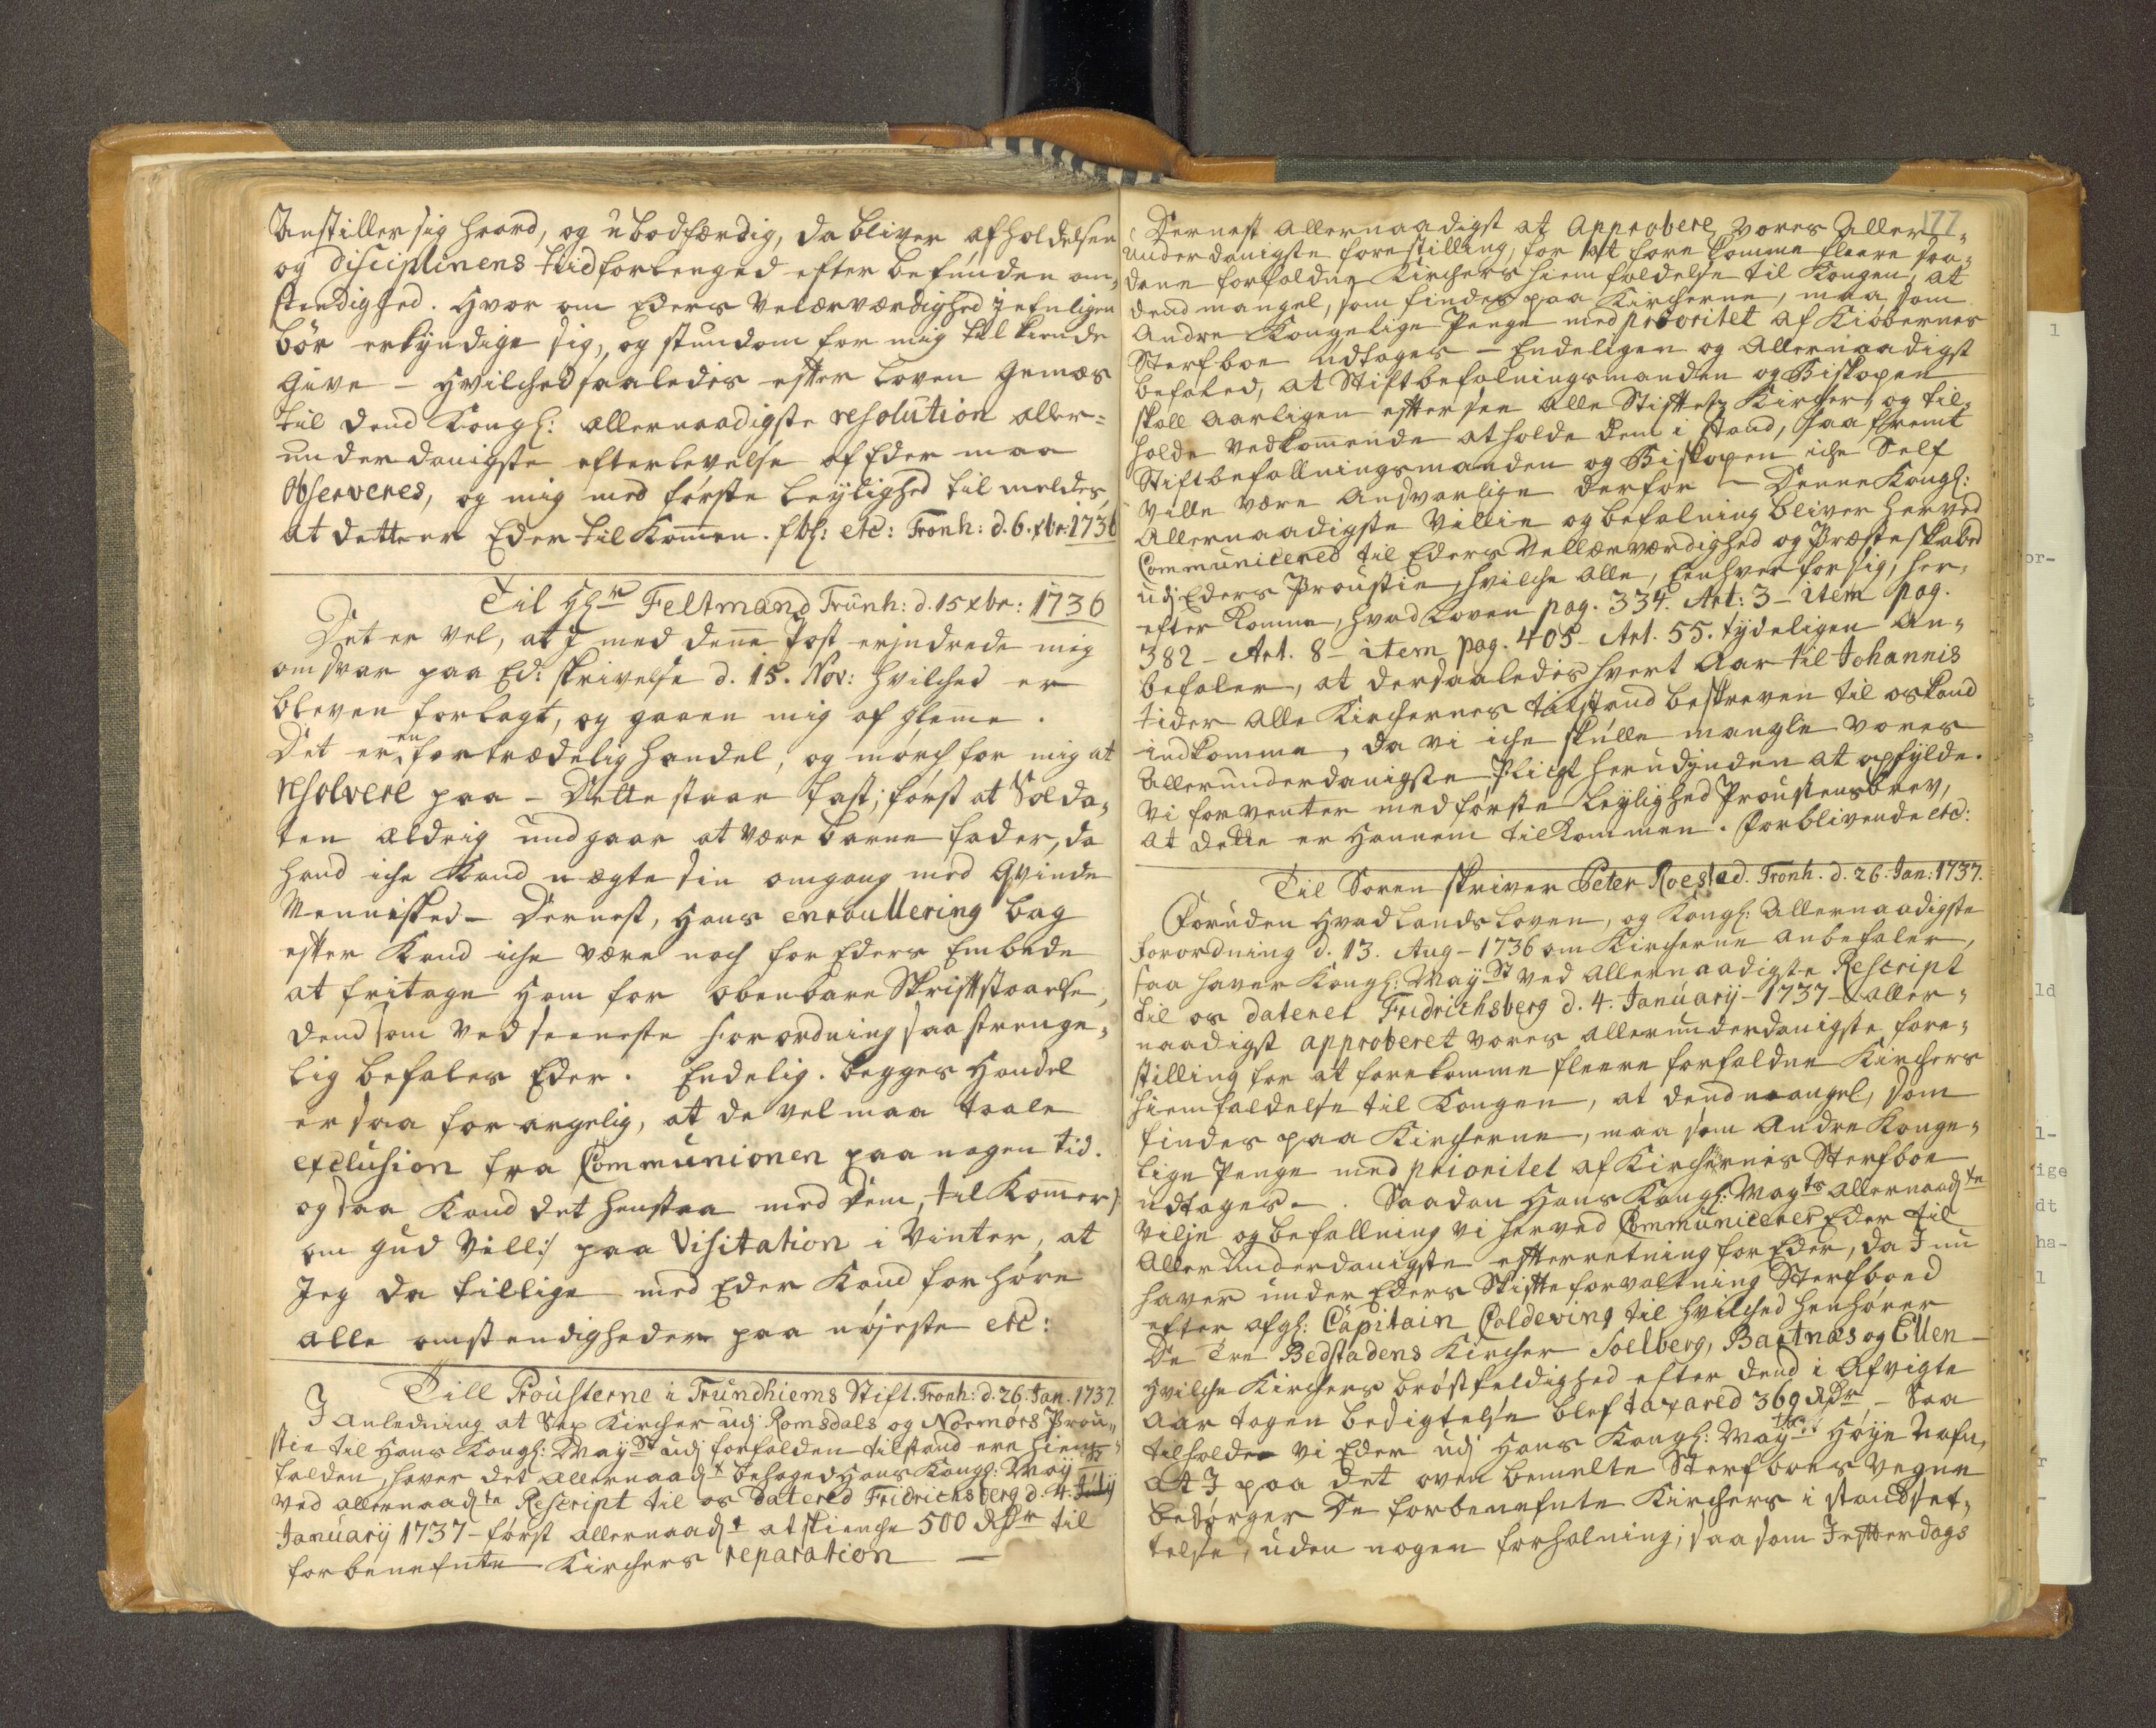 Anstiller sig haard, og ubodferdig, da bliver afholdelsen
og disciplinens tiid forlenged efter befunden om-
stendighed. Hvor om Eders Velærværdighed jefnligen
bör erkyndige sig, og stundom for mig til kiende
Give – Hvilched saaledis efter loven Gemæs
til dend Kongl: allernaadigste resolution aller=
underdanigste efterlevelse af Eder maa
Observeres, og mig med første leylighed til meldes,
at dette er Eder til Kommen. fbl: etc: Tronh: d. 6. xbr: 1736
Til Hr Feltmand Trunh: d. 15 xbr: 1736
Det er vel, at I med denne Post erindrede mig
om svar paa Ed: skrivelse d. 15. Nov: hvilched er
bleven forlagt, og gaaen mig af glemme.
Det er en fortrædelig handel, og mørch for mig at
resolvere paa – Dette staar fast; først at Solda-
ten aldrig undgaar at være barne fader, da
hand iche Kand nægte sin omgang med Qvinde
Mennisked – Dernest, Hans enroullering bag
efter Kand iche være noch for Eders Embede
at fritage Ham for obenbare Skriftstaaelse,
dend som ved seeneste Forordning saa strenge-
lig befales Eder. Endelig. begges Handel
er saa forargelig, at de vel maa taale
exclusion fra Communionen paa nogen tid.
og saa Kand det henstaa med Dem, til Kommer/:
om gud Vill:/ paa Visitation i Vinter, at
Jeg da tillige med Eder Kand forhøre
alle omstendigheder paa nøjeste etc:
Till Prousterne i Trundhiems Stift. Tronh: d. 26. Jan. 1737.
I Anledning at Sex Kircher udj Romsdals og Normørs Prou-
stie til Hans Kongl: Maysts udj forfalden tilstand ere hiem-
falden, haver det allernaadt behaged Hans Kongl: Mayst
ved allernaadte Rescript til os Datered Fridrichsberg d. 4. July
January 1737 – først allernaadt at skienche 500 Rdr til
forbenefnte Kirchers reparation —
177
Dernest allernaadigst at Approbere vores Aller-
underdanigste forestilling, for at fore komme fleere saa-
dane forfaldne Kirchers hiemfaldelse til Kongen, at
dend mangel, som findes paa Kircherne, maa som
Andre Kongelige Penge med prioritet af Kiøbernes
Sterfboe udtages – Endeligen og Allernaadigst
befaled, at Stiftbefalningsmanden og Biskopen
skall aarligen efftersee alle Stifftetz Kircher, og til-
holde vedkommende at holde dem i stand, saa fremt
Stiftbefallningsmanden og Biskopen iche Self
ville være Andsvarlige derfor – Denne Kongl:
Allernaadigste Villie og befalning bliver herved
Communicered til Eders Vellærværdighed og Præsteskabed
udj Eders Proustie, hvilche alle, Eenhver for sig, her-
efter Komme, hvad Loven pag. 334. Art: 3 – item pag.
382 – Art. 8 – item pag. 405 – Art. 55. tydeligen An-
befaler, at der saaledis hvert Aar til Johannis
tider alle Kirchernes tilstand beskreven til os Kand
indkomme, da vi iche skulle mangle vores
Allerunderdanigste Pligt herudjnden at opfylde.
Vi forventer med første leylighed Proustens brev,
at dette er Hannem tilkommen. Forblivende etc:
Til Soren skriver Peter Roestad. Tronh. d. 26. Jan: 1737.
Foruden Hvad Lands Loven, og Kongl: Allernaadigste
Forordning d. 13. Aug – 1736 om Kircherne anbefaler,
saa haver Kongl: Mayst ved allernaadigste Rescript
til os dateret Fridrichsberg d. 4. January – 1737 – aller-
naadigst approberet vores allerunderdanigste fore-
stilling for at forekomme fleere forfaldne Kirchers
hiemfaldelse til Kongen, at dend mangel, som
findes paa Kircherne, maa som Andre Konge-
lige Penge med prioritet af Kirchernes Sterfboe
udtages –. Saadan Hans Kongl: Mayts allernaadte
Vilje og befallning vi herved Communicerer Eder til
Allerunderdanigste efterretning for Eder, da I nu
haver under Eders Skiffteforvaltning Sterfboed
efter afgl: Capitain Coldeving til hvilched henhører
De Tre Bedstadens Kircher Solberg, Bartnæs og Ellen
Hvilche Kirchers brøstfeldighed efter dend i Afvigte
Aar tagen besigtelse blef taxared 369 Rdr, – Saa
tilholder vi Eder udj Hans Kongl: Mayts Høye Nafn,
at I paa det oven bemelte Sterfboes vegne
besørger De forbenefnte Kirchers i standset-
telse, uden nogen forhalning, saasom I efterdags